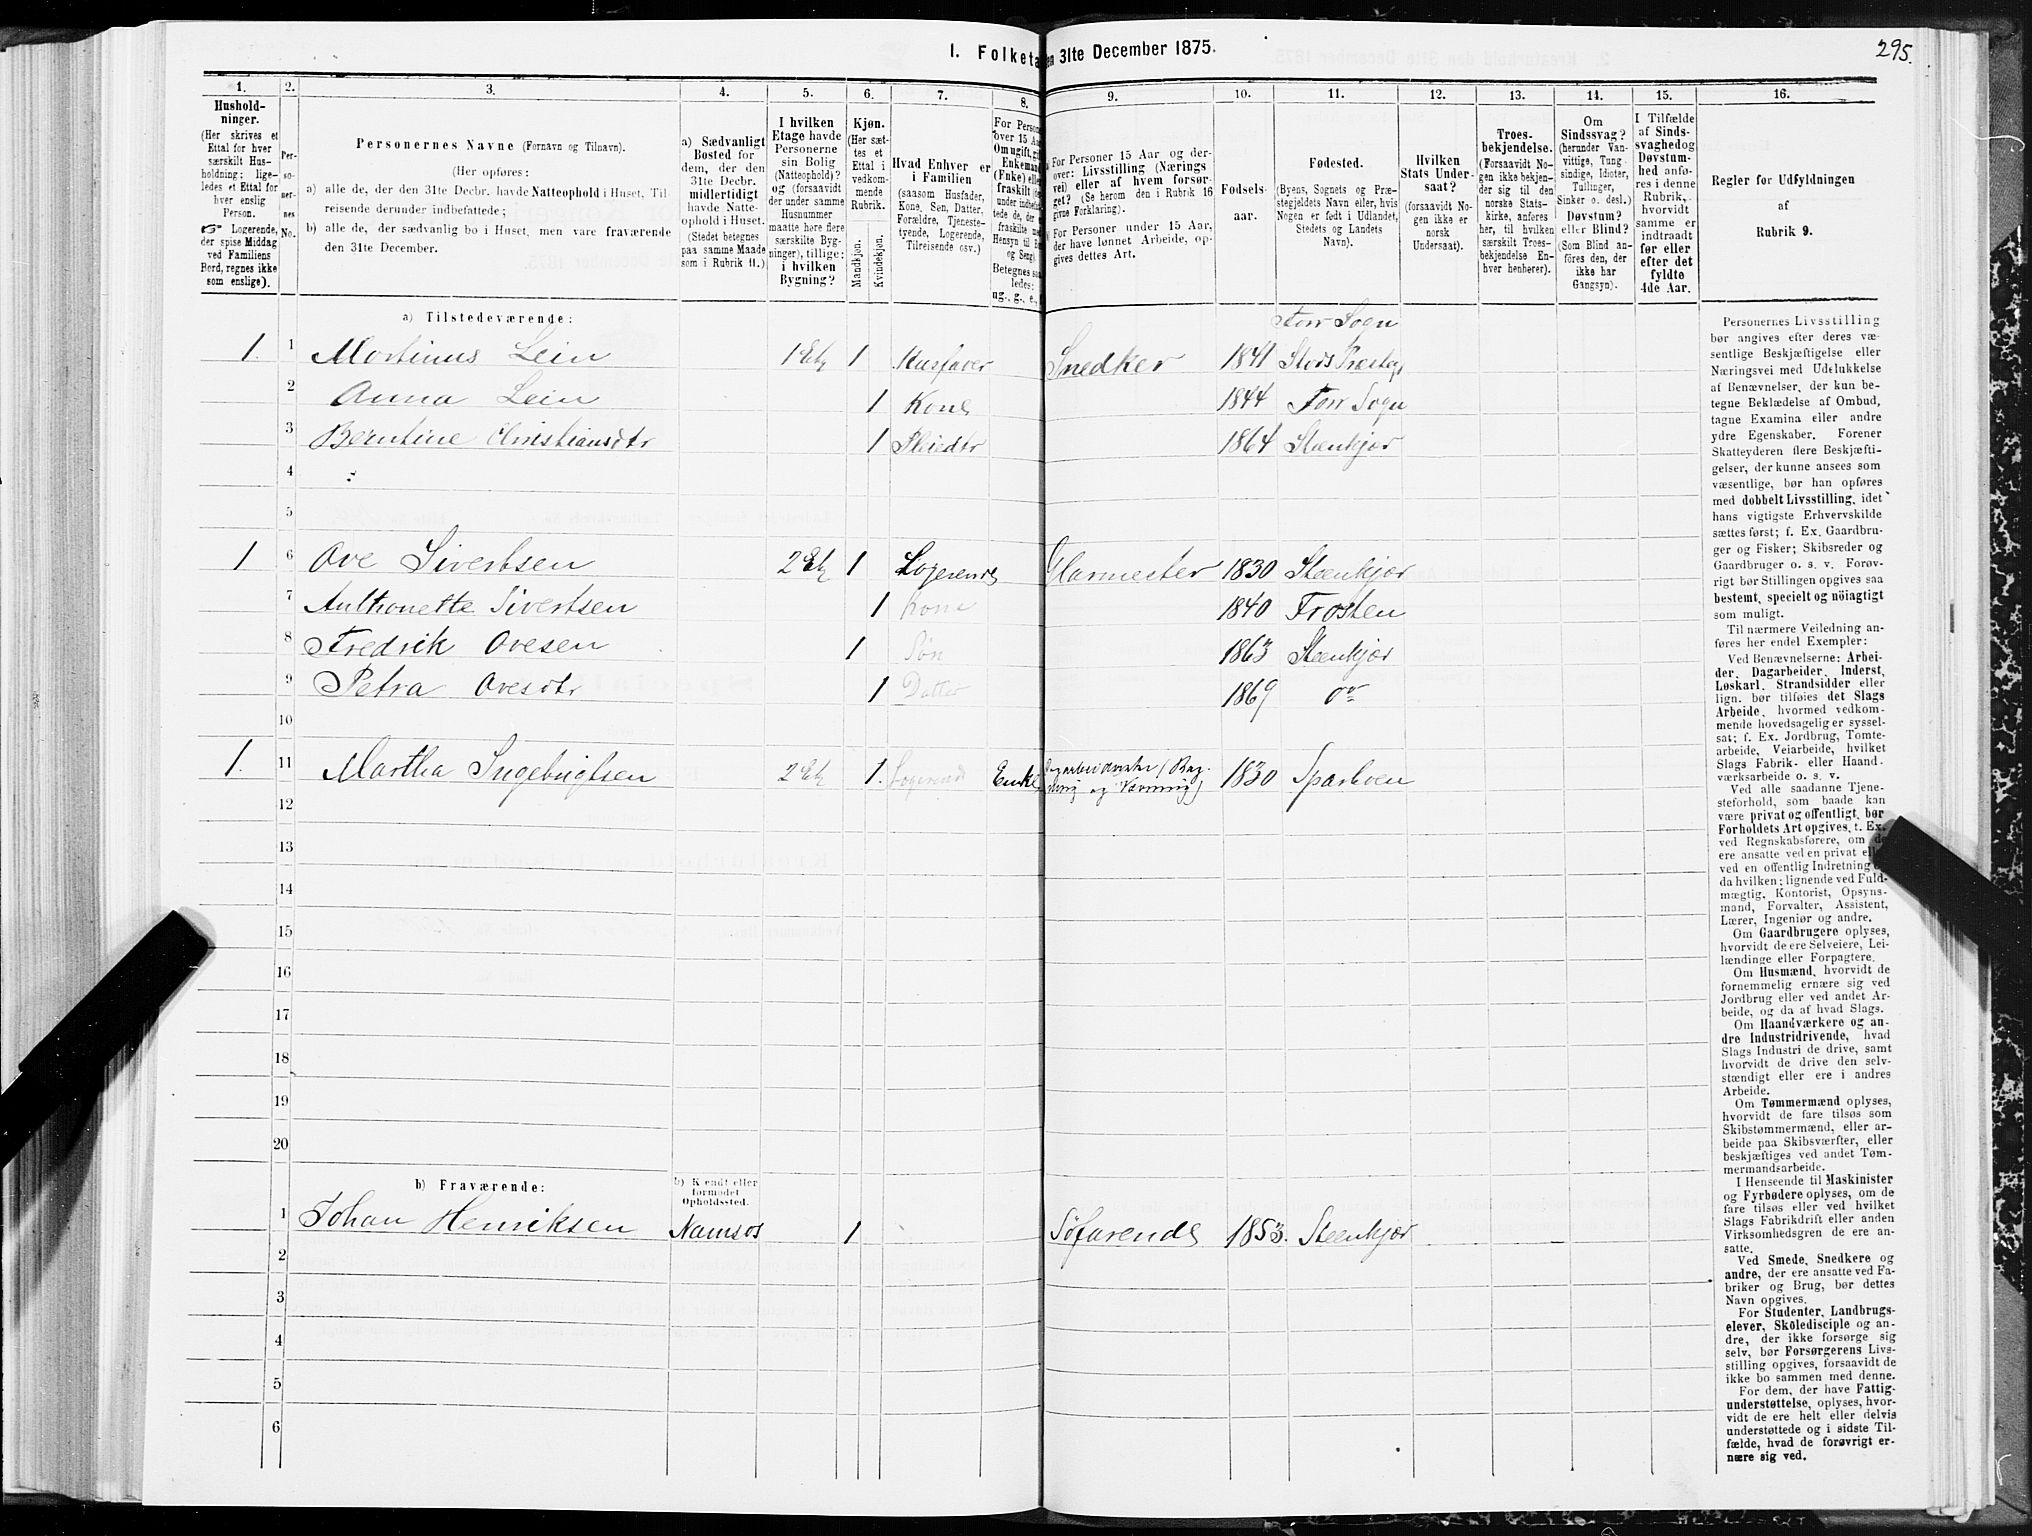 295.
I. Folketæ
en 31te December 1875.
1. 2. 3. 4. 5. 6. 7. 8. 9. 10. 11. 12. 13. 14. 15. 16.
Hushold-
ninger.
(Her skrives et
Ettal for hver
særskilt Hus-
holdning; lige-
ledes et Ettal for
hver enslig
Person.
☞ Logerende,
der spise Middag
ved Familiens
Bord, regnes ikke
som enslige).
Per-
so-
ner-
nes
No.
Personernes Navne (Fornavn og Tilnavn).
(Her opføres:
a) alle de, der den 31te Decbr. havde Natteophold i Huset, Til-
reisende derunder indbefattede;
b) alle de, der sædvanlig bo i Huset, men vare fraværende
den 31te December.
a) Sædvanligt
Bosted for
dem, der den
31te Decbr.
midlertidigt
havde Natte-
ophold i Huset.
(Stedet betegnes
paa samme Maade
som i Rubrik 11.)
I hvilken
Etage havde
Personerne
sin Bolig
(Natteophold)?
og (forsaavidt
der under samme
Husnummer
maatte høre flere
særskilte Byg-
ninger), tillige:
i hvilken
Bygning?
Kjøn.
(Her sæt-
tes et
Ettal i
vedkom-
mende
Rubrik.
Mandkjøn.
Kvindekjøn.
Hvad Enhver er
i Familien
(saasom Husfader,
Kone, Søn, Datter,
Forældre, Tjeneste-
tyende, Logerende,
Tilreisende osv.)
For Person
over 15 Aar
Om ugift, gif
Enkemand
(Enke) elle
fraskilt (og
under indbe
tede de, der e
fraskilte me
Hensyn til B
og Seng)
Betegnes saa
ledes:
ug., g., e.,
For Personer 15 Aar og der-
over: Livsstilling (Nærings
vei) eller af hvem forsør-
get? (Se herom den i Rubrik 16
givne Forklaring).
For Personer under 15 Aar,
der have lønnet Arbeide, op-
gives dettes Art.
Fødsels-
aar.
Fødested.
(Byens, Sognets og Præ-
stegjeldets Navn eller, hvis
Nogen er født i Udlandet,
Stedets og Landets
Navn).
Hvilken
Stats Under-
saat?
(forsaavidt No-
gen ikke er
norsk
Undersaat).
Troes-
bekjendelse.
(Forsaavidt No-
gen ikke bekjen-
der sig til den
norske Stats-
kirke, anføres
her, til hvilken
særskilt Troes-
bekjendelse En-
hver henhører).
Om
Sindssvag?
(herunder Van-
vittige, Tung-
sindige, Idioter,
Tullinger,
Sinker o. desl.)
Døvstum?
eller Blind?
(Som Blind an-
føres den, der
ikke har
Gangsyn).
I Tilfælde
af Sinds-
svaghed og
Døvstum-
hed anfø-
res i denne
Rubrik,
hvorvidt
samme er
indtraadt
før eller
efter det
fyldte
4de Aar.
Regler for Udfyldningen
af
Rubrik 9.
a) Tilstedeværende:
Forr Sogn
1. 1 Mortinus Lein 1 Etg 1 Husfader Snedker 1841 Stods Præsteg
2 Anna Lein 1 Kone 1844 Forr Sogn
3 Berntine Christiansdtr 1 Pleiedtr 1864 Steenkjær
4
5
1 6 Ove Sivertsen 2 Etg 1 Logerende Glarmester 1830 Steenkjær
7 Anthonette Sivertsen 1 Kone 1840 Frosten
8 Fredrik Ovesen 1 Søn 1863 Steenkjær
9 Petra Ovesdtr 1 Datter 1869 do
10
1. 11 Martha Ingebrigtsen 2 Etg 1. Logerende Enke 1830 Sparboen
og
12
13
14
15
16
17
18
19
20
b) Fraværende:
b) Kjendt eller
formodet
Opholdssted.
1 Johan Henriksen Namsos 1 Søfarende 1853. Steenkjær
2
3
4
5
6
Personernes Livsstilling
bør angives efter deres væ-
sentlige Beskjæftigelse eller
Næringsvei med Udelukkelse
af Benævnelser, der kun be-
tegne Beklædelse af Ombud,
tagne Examina eller andre
ydre Egenskaber. Forener
Skatteyderen flere Beskjæfti-
gelser, der kunne ansees som
væsentlige, bør han opføres
med dobbelt Livsstilling, idet
hans vigtigste Erhvervskilde
sættes først; f. Ex. Gaardbru-
ger og Fisker; Skibsreder og
Gaardbruger o. s. v. Forøv-
rigt bør Stillingen opgives saa
bestemt, specielt og nöiagtigt
som muligt.
Til nærmere Veiledning an-
føres her endel Exempler:
Ved Benævnelserne: Arbei-
der, Dagarbeider, Inderst,
Løskarl, Strandsidder eller
lign. bør tilføies det Slags
Arbeide, hvormed vedkom-
mende hovedsagelig er syssel-
sat; f. Ex. Jordbrug, Tomte-
arbeide, Veiarbeide, hvilket
Slags Fabrik- eller Haand-
værksarbeide o. s. v.
Ved alle saadanne Tjene-
steforhold, som baade kan
være privat og offentligt, bør
Forholdets Art opgives, t. Ex.
ved Regnskabsførere, om de
ere ansatte ved en privat eller
ved en offentlig Indretning og
da hvilken; lignende ved Fuld-
mægtig, Kontorist, Opsyns-
mand, Forvalter, Assistent,
Lærer, Ingeniør og andre.
Om Gaardbrugere oplyses,
hvorvidt de ere Selveiere, Lei-
lændinge eller Forpagtere.
Om Husmænd, hvorvidt de
fornemmelig ernære sig ved
Jordbrug eller ved andet Ar-
beide, og da af hvad Slags.
Om Haandværkere og an-
dre Industridrivende, hvad
Slags Industri de drive, samt
hvorvidt de drive den selv-
stændigt eller ere i andres
Arbeide.
Om Tømmermænd oplyses,
hvorvidt de fare tilsøs som
Skibstømmermænd, eller ar-
beide paa Skibsværfter, eller
beskjæftiges ved andet Tøm-
mermandsarbeide.
I Henseende til Maskinister
og Fyrbødere oplyses, om de
fare tilsøs eller ved hvilket
Slags Fabrikdrift eller anden
Virksomhedsgren de ere an-
satte.
Ved Smede, Snedkere og
andre, der ere ansatte ved Fa-
briker og Brug, bør dettes
Navn opgives.
For Studenter, Landbrugs-
elever, Skoledisciple og an-
dre, der ikke forsørge sig
selv, bør Forsørgerens Livs-
stilling opgives, forsaavidt de
ikke bo sammen med denne.
For dem, der have Fattig-
understøttelse, oplyses, hvor-
vidt de ere helt eller delvis
understøttede og i sidste Til-
fælde, hvad de forøvrigt er-
nære sig ved.